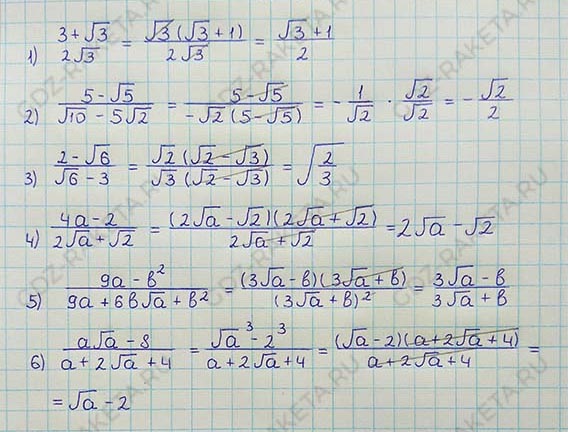 1) (3+√3)/(2√3) = (√3(√3+1))/(2√3) = (√3+1)/2
2) (5-√5)/(√10-5√2) = (5-√5)/(-√2(5-√5)) = -1/√2 · √2/√2 = -√2/2
3) (2-√6)/(√6-3) = (√2(√2-√3))/(√3(√2-√3)) = √(2/3)
4) (4a-2)/(2√a+√2) = ((2√a-√2)(2√a+√2))/(2√a+√2) = 2√a-√2
5) (9a-b²)/(9a+6b√a+b²) = ((3√a-b)(3√a+b))/((3√a+b)²) = (3√a-b)/(3√a+b)
6) (a√a-8)/(a+2√a+4) = (√a³-2³)/(a+2√a+4) = ((√a-2)(a+2√a+4))/(a+2√a+4) =
= √a-2
GDZ-RAKETA.RU